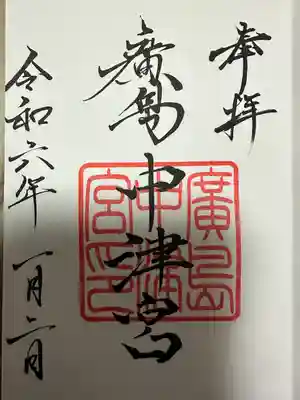 奉拝
廣島中津宮
廣島
中津
宮印
令和六年 一月二日